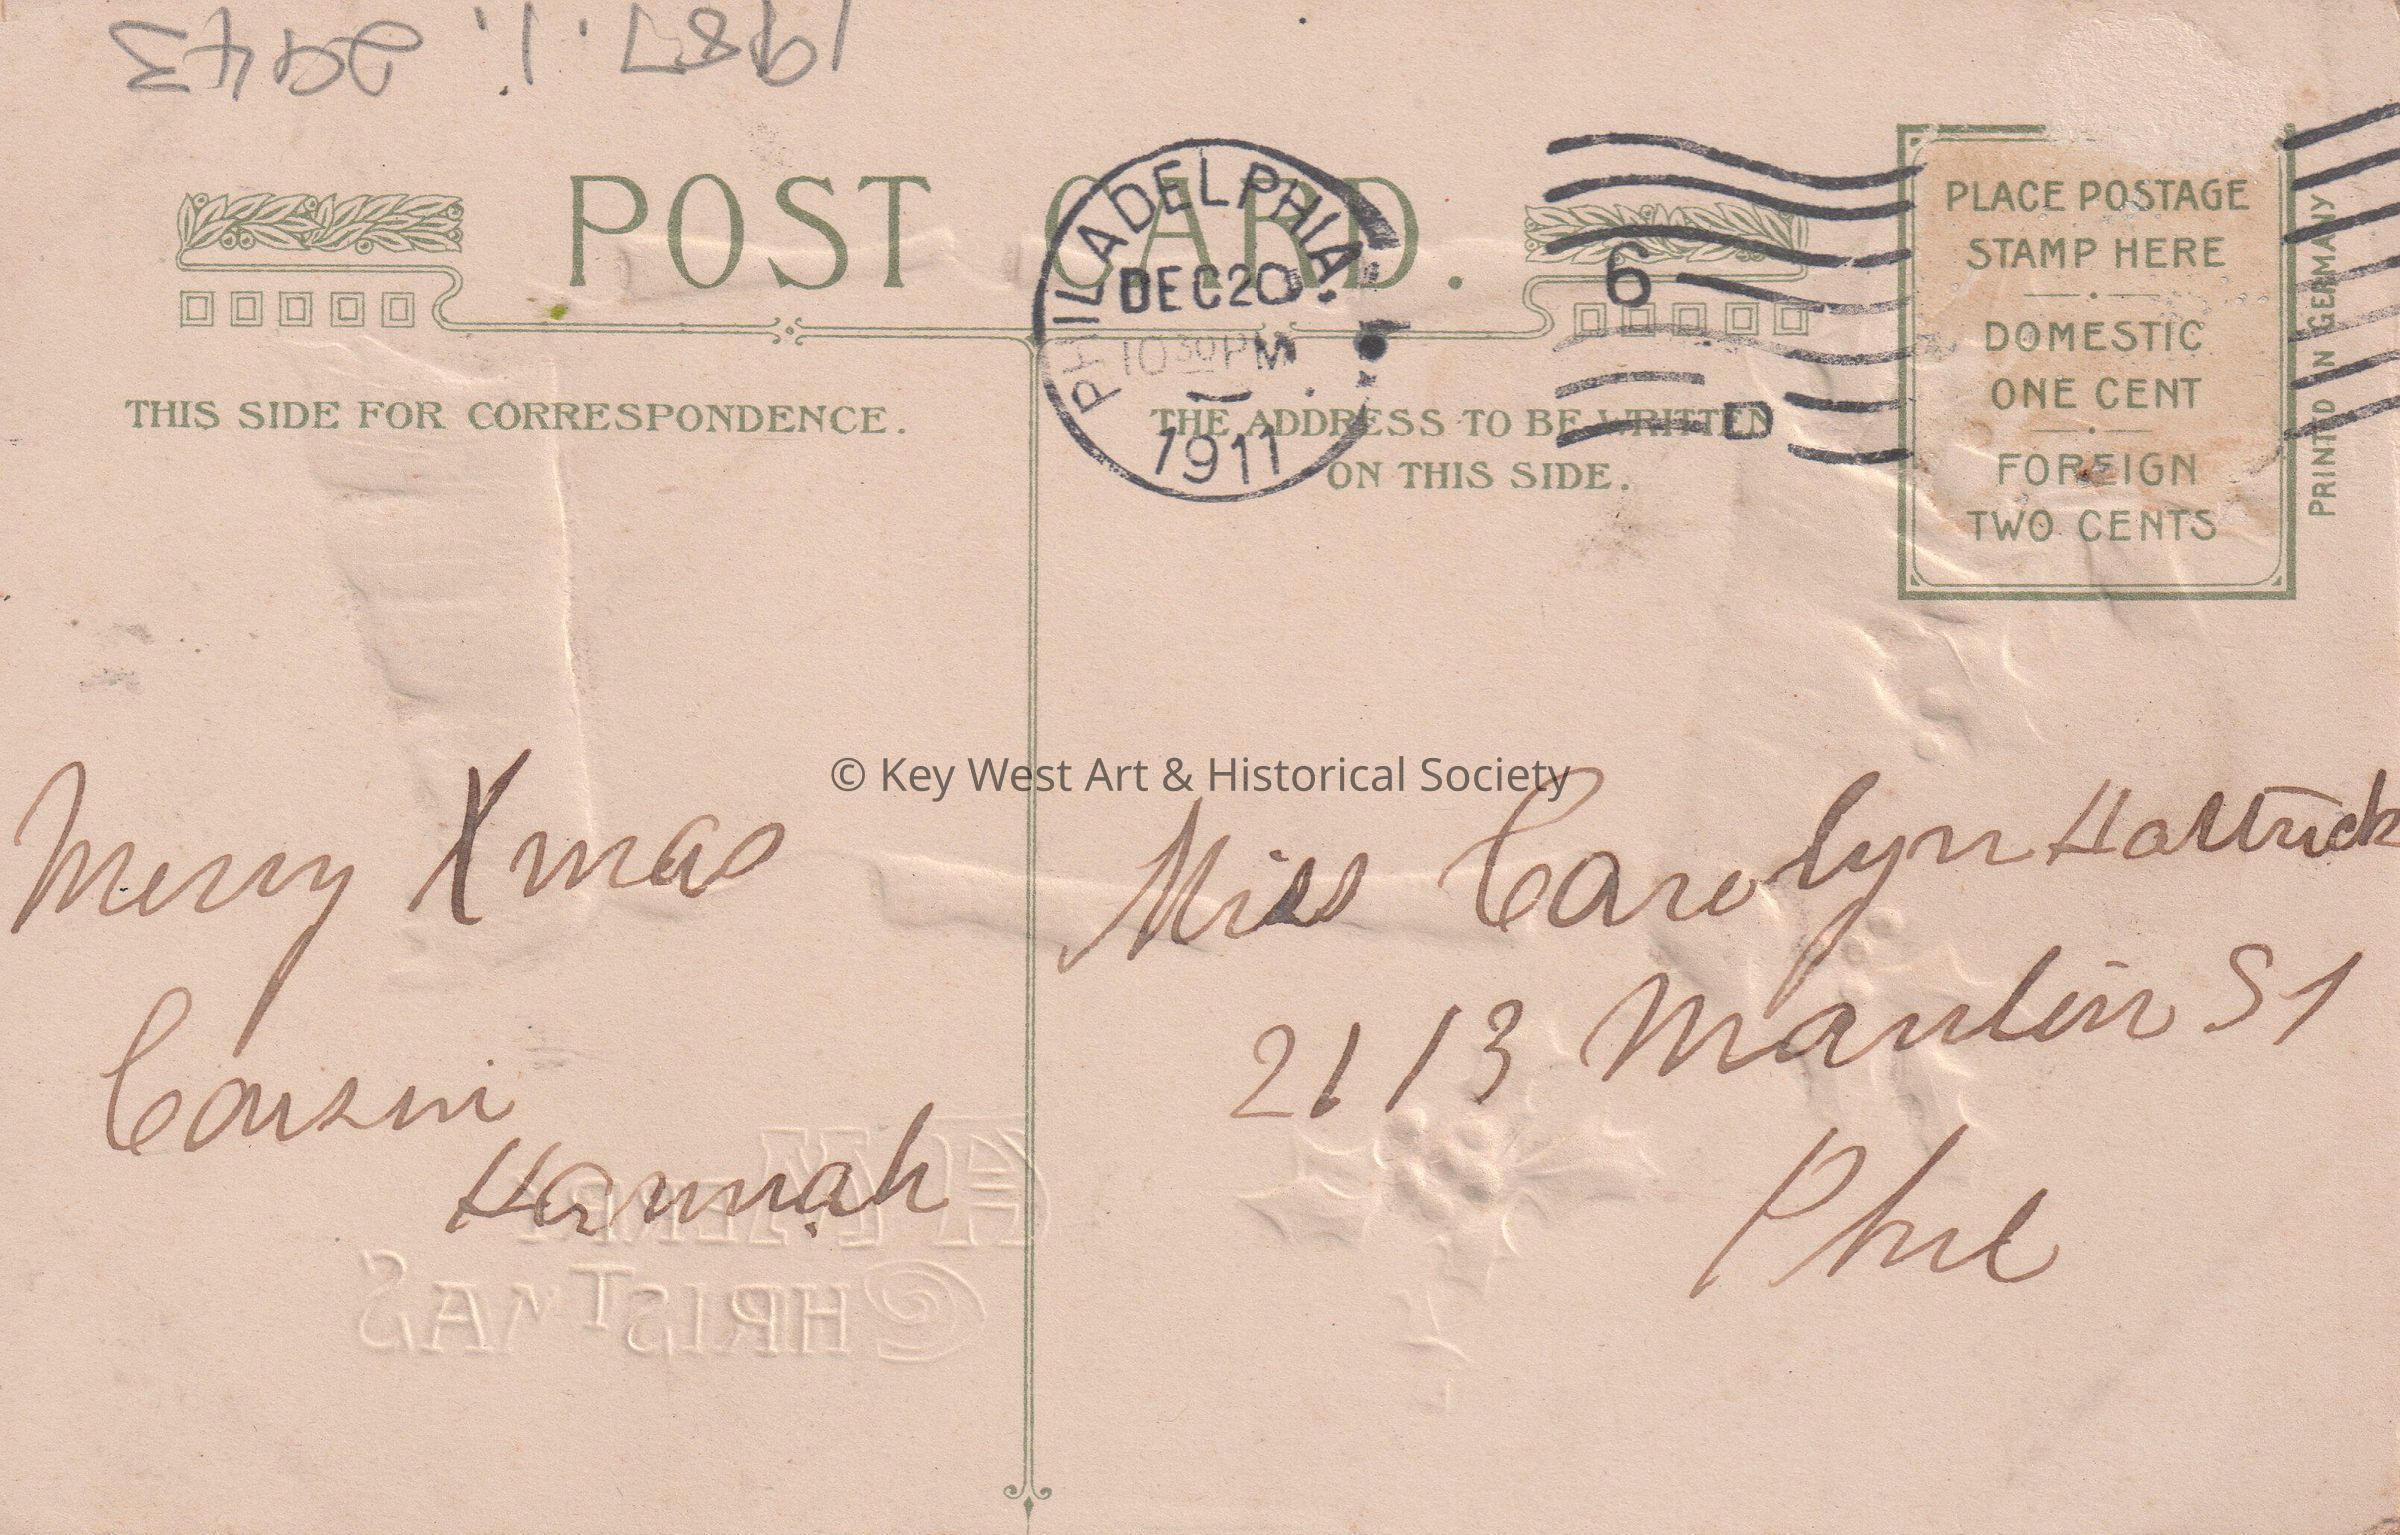 1987.1.2943
POST CARD.
PHILADELPHIA.
DEC 20
10 30 PM
1911
6
D
PLACE POSTAGE
STAMP HERE
DOMESTIC
ONE CENT
FOREIGN
TWO CENTS
PRINTED IN GERMANY
THIS SIDE FOR CORRESPONDENCE.
THE ADDRESS TO BE WRITTEN
ON THIS SIDE.
© Key West Art & Historical Society
Merry Xmas
Cousin
Hannah
Miss Carolyn
2113 St
Phil
A MERRY
CHRISTMAS